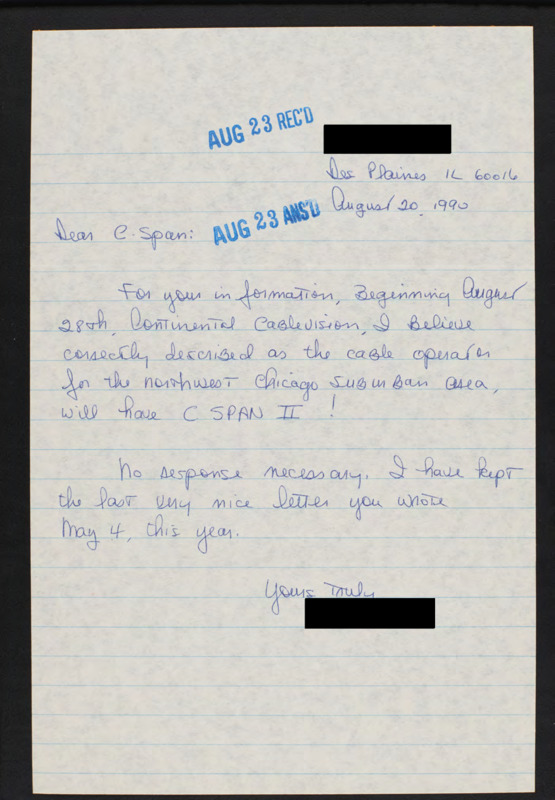 AUG 23 REC'D
Des Plaines IL 60016
August 20, 1990
AUG 23 ANS'D
Dear C. Span:
For your in formation, Beginning August
28th, Continental Cablevision, I Believe
correctly described as the cable operator
for the northwest Chicago suburban area,
will have C SPAN II !
No response necessary. I have kept
the last very nice letter you wrote
May 4, this year.
Yours Truly